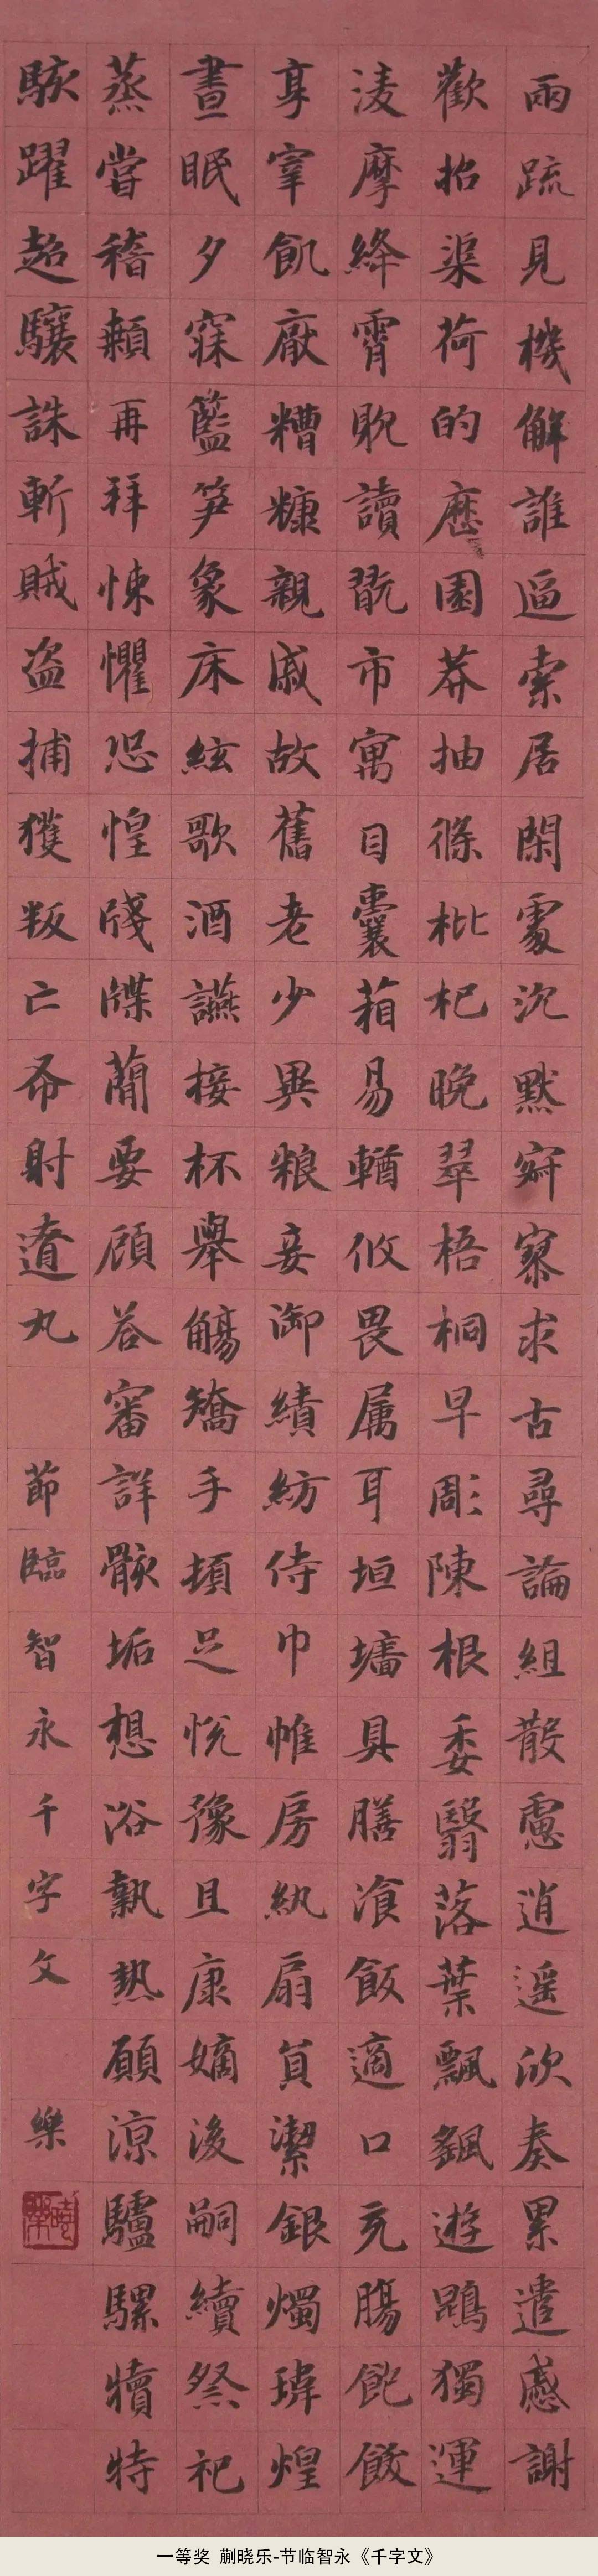 兩疏見機解誰逼索居閑處沉默寂寥求古尋論組散慮逍遥欣奏累遣慼謝
歡招渠荷的歷園莽抽條枇杷晚翠梧桐早彫陳根委翳落葉飄飖遊鵾獨運
淩摩絳霄耽讀翫市寓目囊葙易輶攸畏属耳垣墻具膳飡飯適口充腸飽飫
享宰飢厭糟糠親戚故舊老少異粮妾御績紡侍巾帷房紈扇員潔銀燭瑋煌
晝眠夕寐籃笋象床絃歌酒讌接杯舉觴矯手頓足悅豫且康嫡後嗣續祭祀
蒸嘗稽顙再拜悚懼恐惶牋牒蕳要顧答審詳骸垢想浴執熱願涼驢騾犢特
駭躍超驤誅斬賊盗捕獲叛亡布射遼丸
節臨智永千字文
樂
一等奖 蒯晓乐-节临智永《千字文》